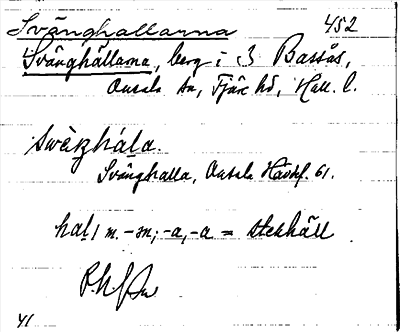 Svänghallarna 452
Svänghällarna, berg i 3 Bassås,
Onsala sn, Fjäre hd, Hall. l.
swàŋhála.
Svänghalla, Onsala Hävkf. 61.
hal/ m. -ən; -a, -a = stenhäll
41